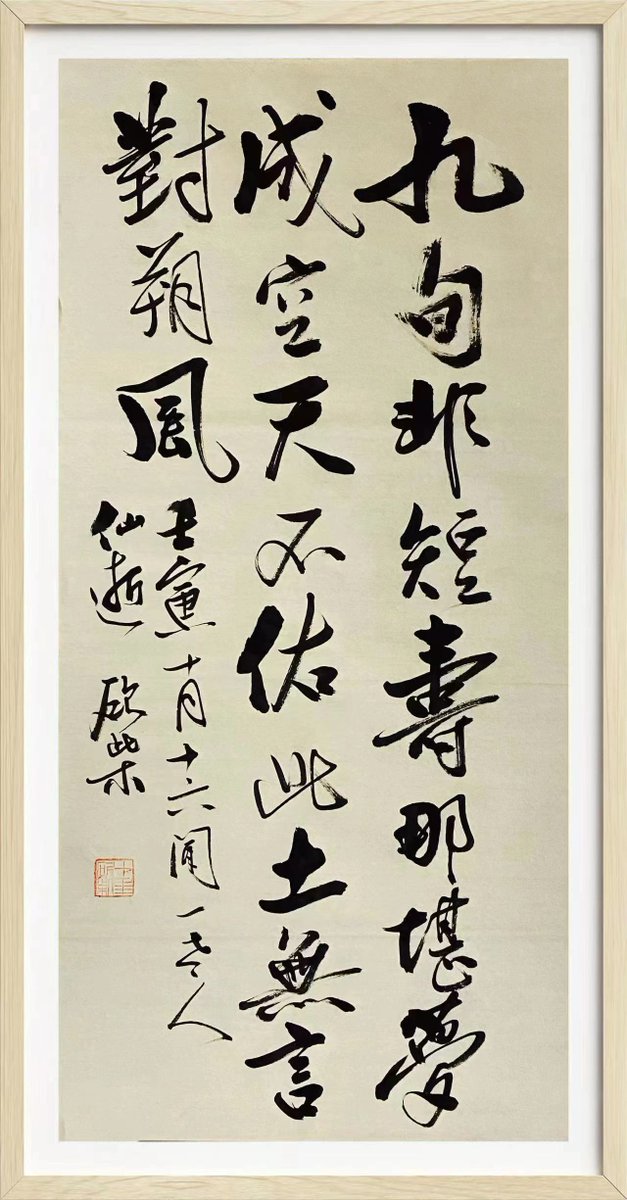 九旬非短壽那堪夢
成空天不佑此土無言
對朔風
壬寅十月十六聞一老人
仙逝 砍柴